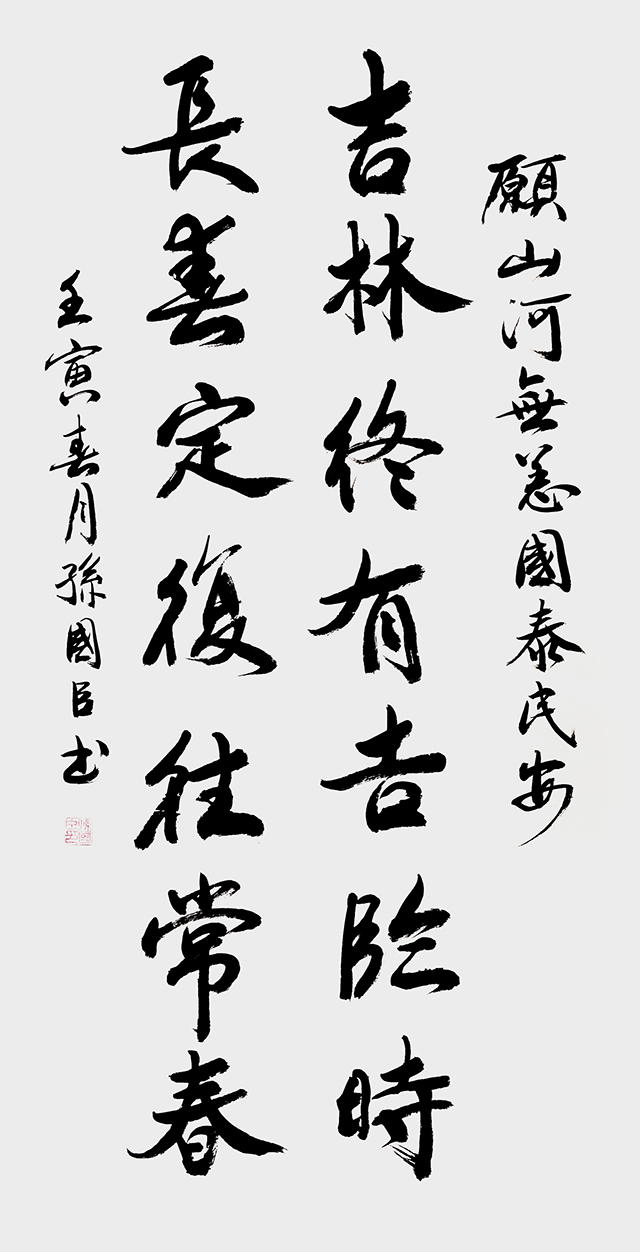 願山河無恙國泰民安
吉林終有吉臨時
長春定復往常春
壬寅春月孫國臣书